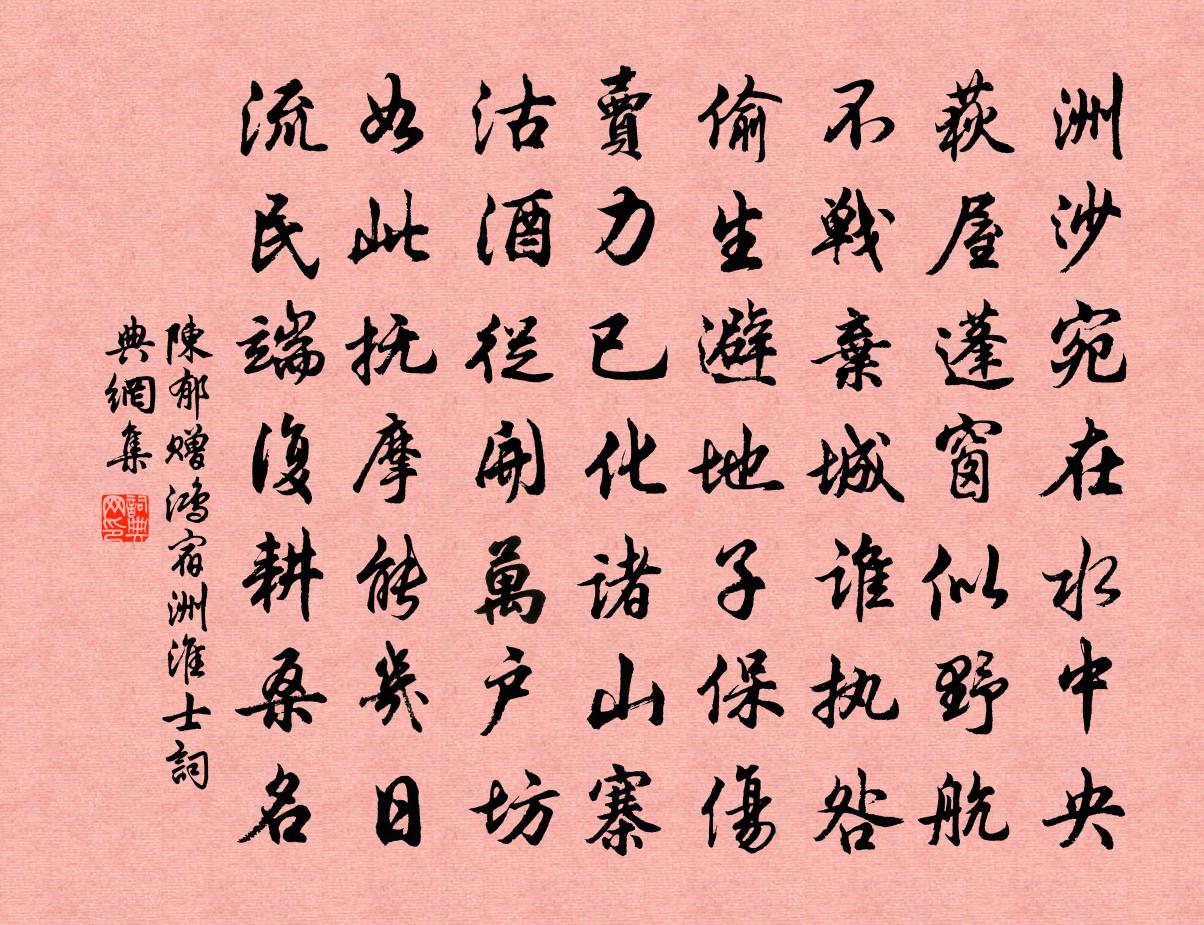 洲沙宛在水中央
荻屋蓬窗似野航
不戰棄城誰执咎
偷生避地子保傷
賣力已化諸山寨
沽酒從開萬户坊
如此抚摩能幾日
流民端復耕桑名
陳郁赠鴻宿洲淮士詞
典網集
詞典
网印